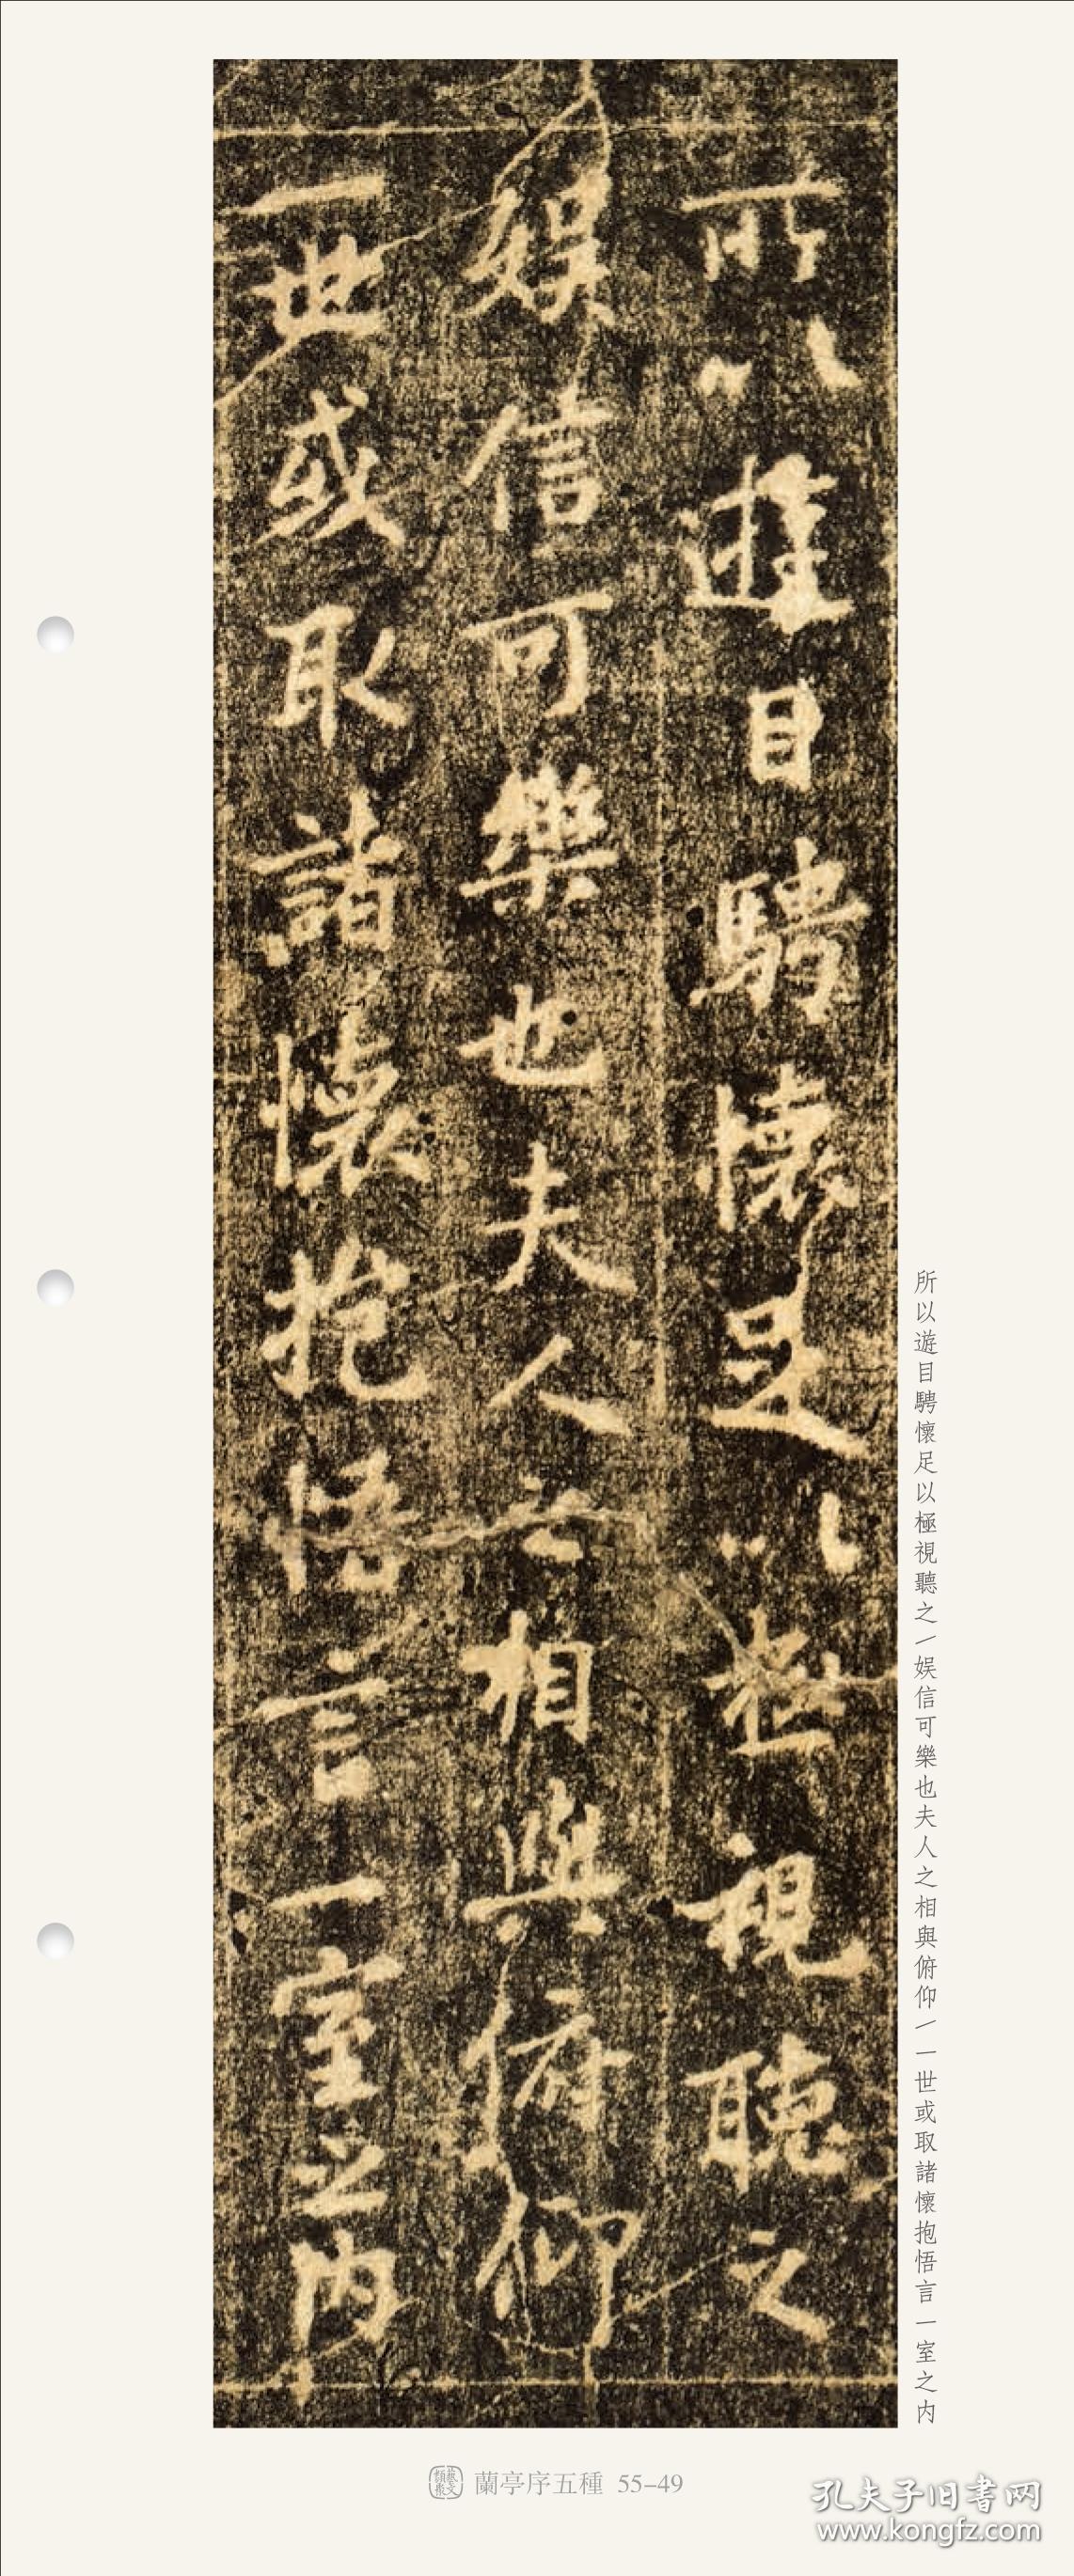 所以遊目騁懷足以極視聽之
娱信可樂也夫人之相與俯仰
一世或取諸懷抱悟言一室之内
所以遊目騁懷足以極視聽之/娱信可樂也夫人之相與俯仰/一世或取諸懷抱悟言一室之内
蘭亭序五種 55-49
孔夫子旧書网
www.kongfz.com